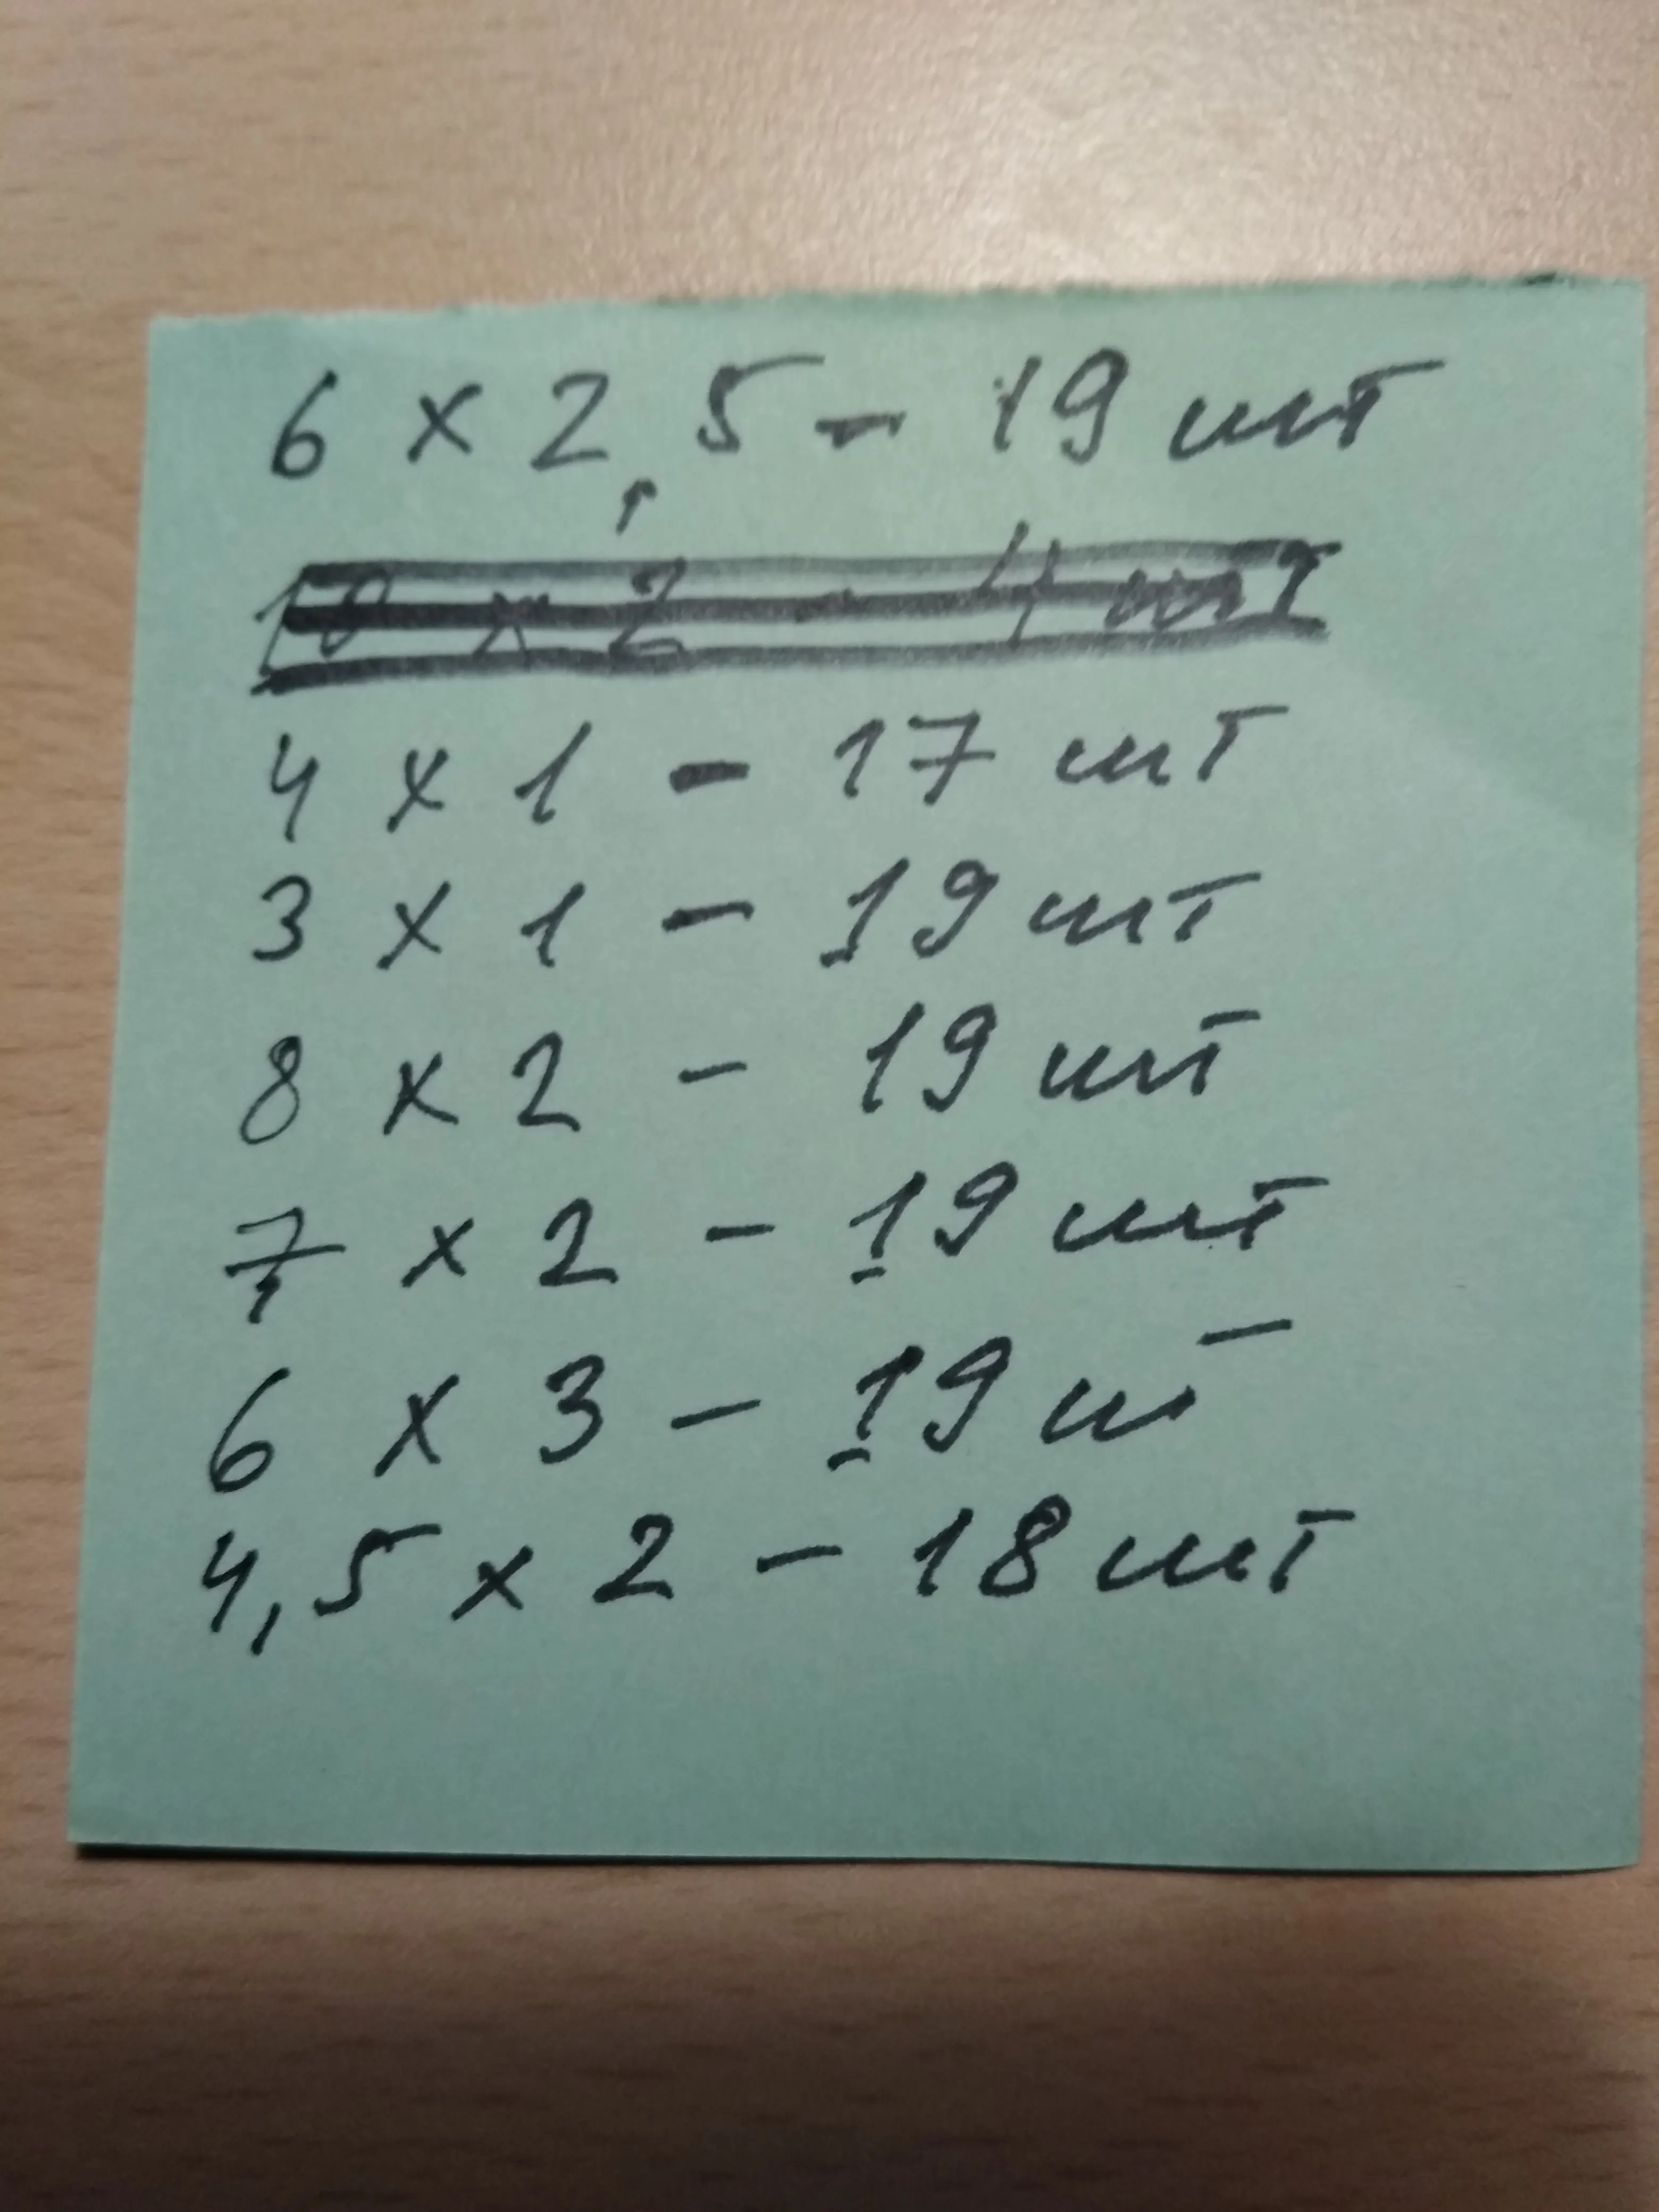 6 x 2,5 - 19 шт
10 x 2 - 4 шт
4 x 1 - 17 шт
3 x 1 - 19 шт
8 x 2 - 19 шт
7 x 2 - 19 шт
6 x 3 - 19 шт
4,5 x 2 - 18 шт